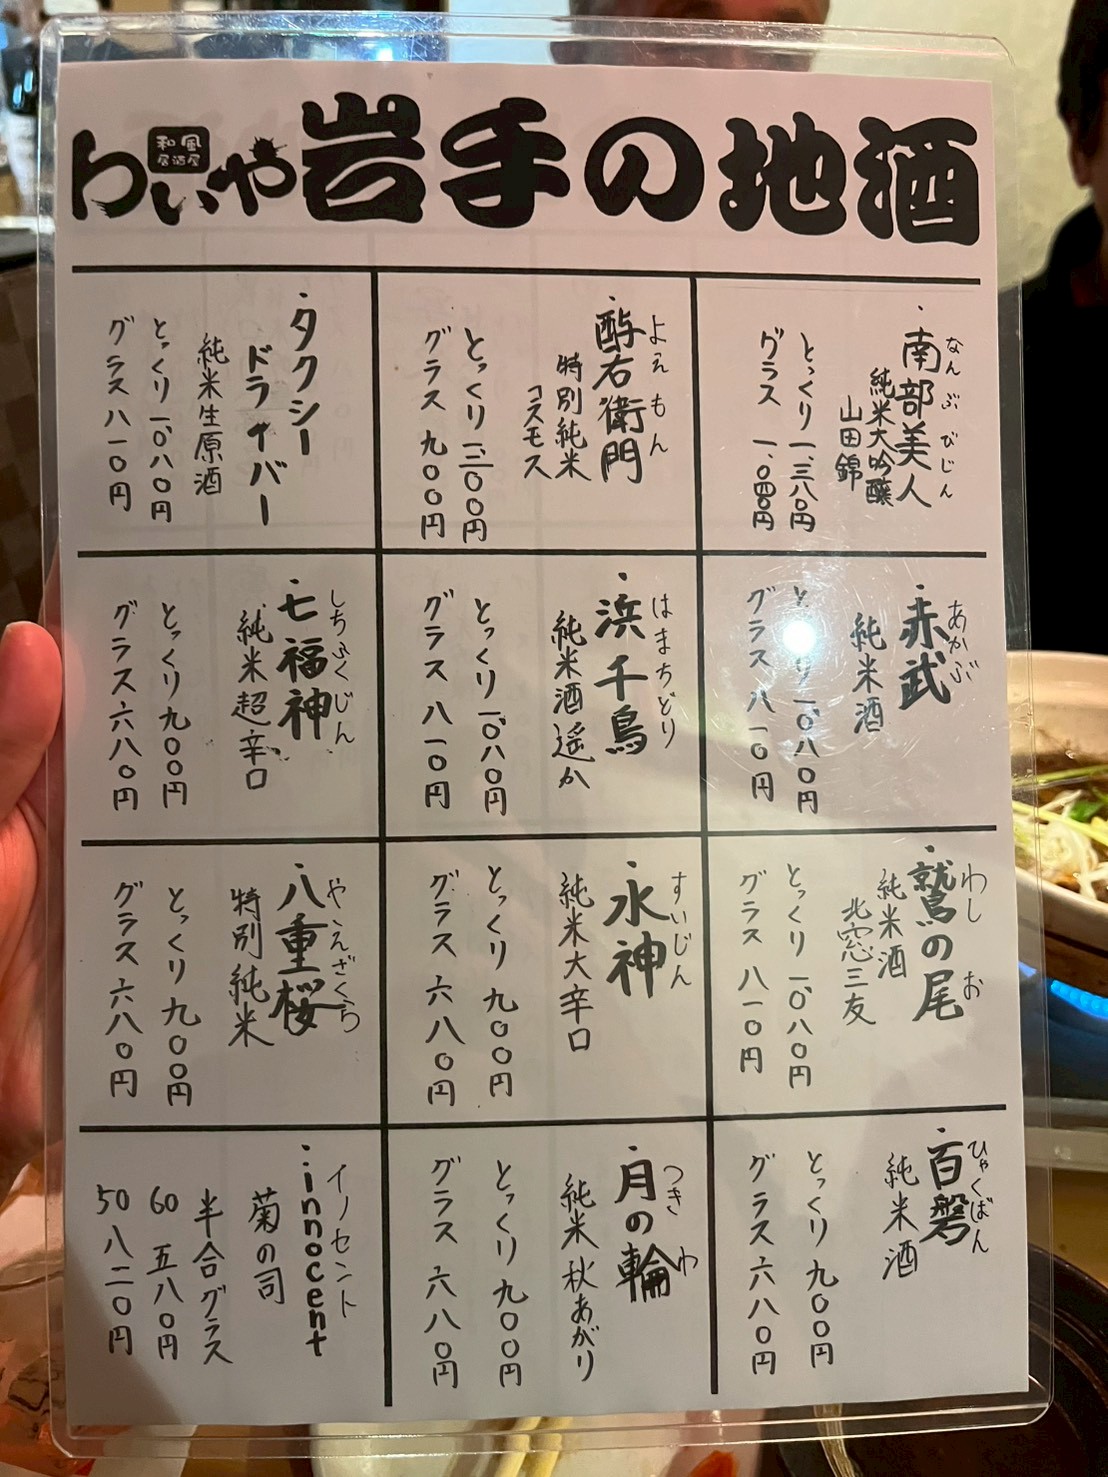 わいや 和風居酒屋 岩手の地酒
・南部美人
なんぶびじん
純米大吟醸
山田錦
とっくり 一、三八〇円
グラス 一、〇四〇円
・酔右衛門
よえもん
特別純米
コスモス
とっくり 一、三〇〇円
グラス 九〇〇円
・タクシー
ドライバー
純米生原酒
とっくり 一、〇八〇円
グラス 八一〇円
・赤武
あかぶ
純米酒
とっくり 一、〇八〇円
グラス 八一〇円
・浜千鳥
はまちどり
純米酒遥か
とっくり 一、〇八〇円
グラス 八一〇円
・七福神
しちふくじん
純米超辛口
とっくり 九〇〇円
グラス 六八〇円
・鷲の尾
わし お
純米酒
北窓三友
とっくり 一、〇八〇円
グラス 八一〇円
・水神
すいじん
純米大辛口
とっくり 九〇〇円
グラス 六八〇円
・八重桜
やえざくら
特別純米
とっくり 九〇〇円
グラス 六八〇円
・百磐
ひゃくばん
純米酒
とっくり 九〇〇円
グラス 六八〇円
・月の輪
つき わ
純米 秋あがり
とっくり 九〇〇円
グラス 六八〇円
・innocent
イノセント
菊の司
半合グラス
60 五八〇円
50 八二〇円